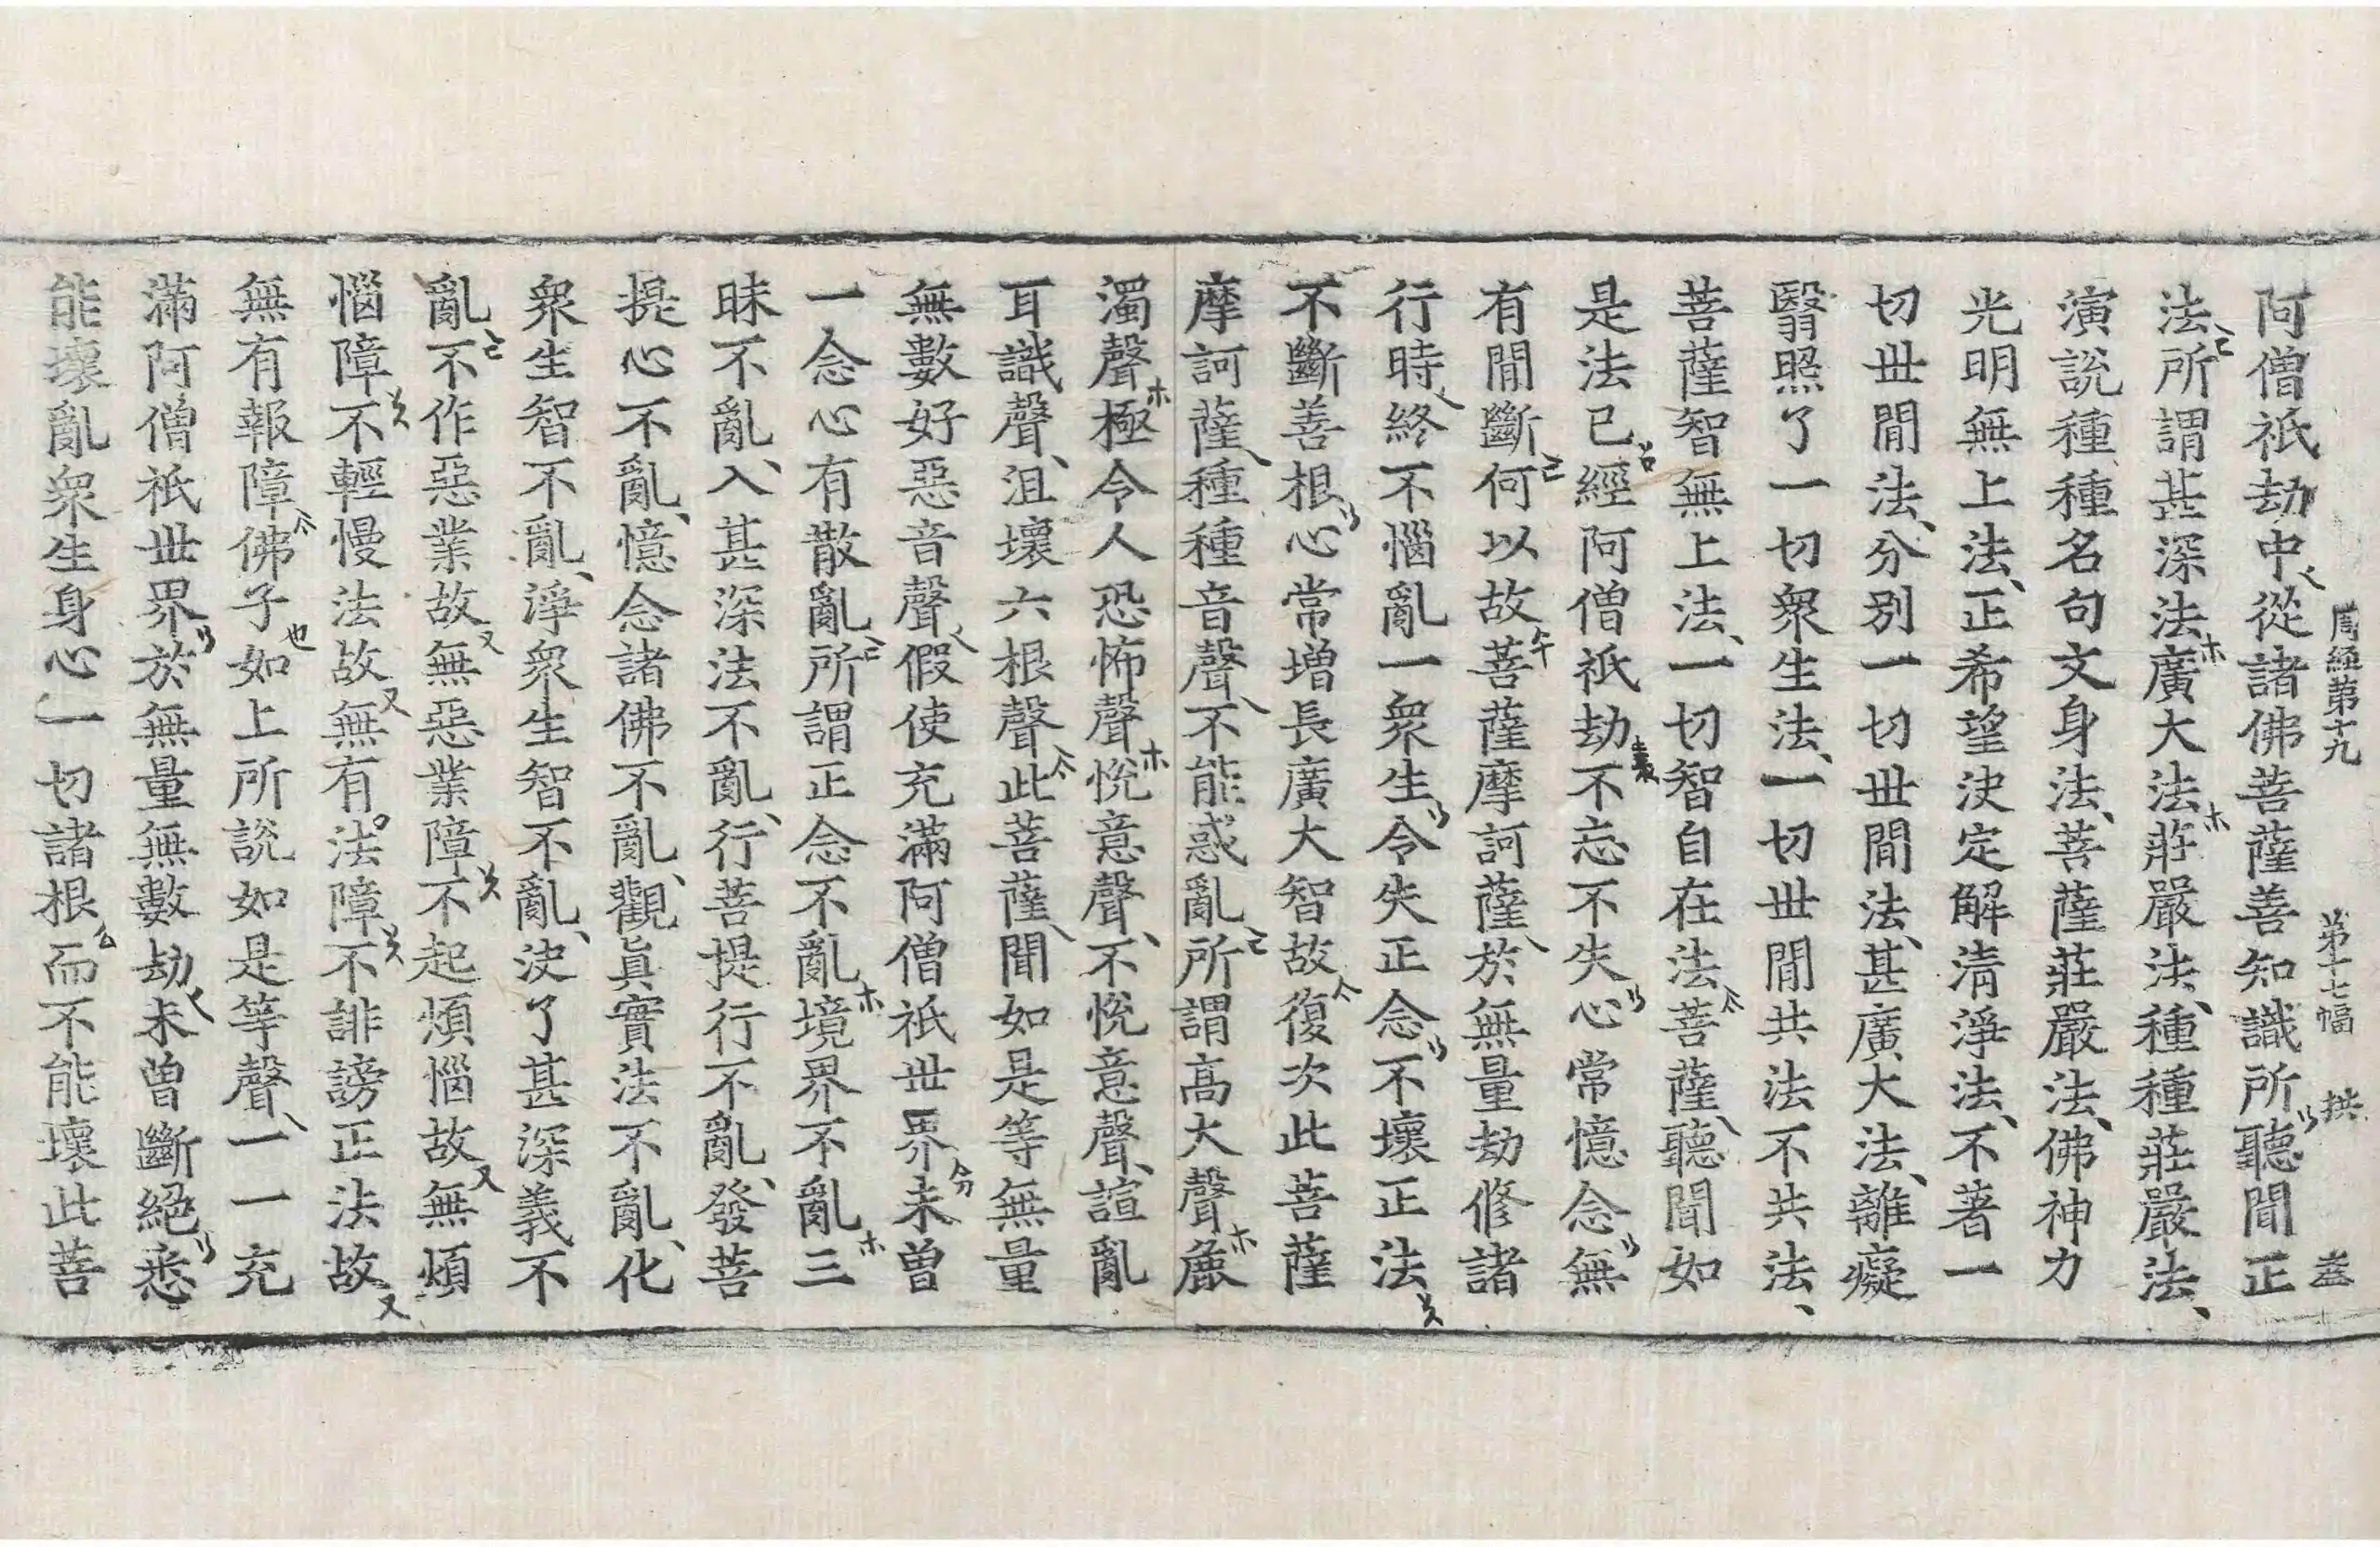 周經第十九 第十七幅 拱
阿僧祇劫中從諸佛菩薩善知識所聽聞正
法所謂甚深法廣大法莊嚴法種種莊嚴法
演說種種名句文身法菩薩莊嚴法佛神力
光明無上法正希望決定解清淨法不著一
切世間法分別一切世間法甚廣大法離癡
翳照了一切衆生法一切世間共法不共法
菩薩智無上法一切智自在法菩薩聽聞如
是法已經阿僧祇劫不忘不失心常憶念無
有間斷何以故菩薩摩訶薩於無量劫修諸
行時終不惱亂一衆生令失正念不壞正法
不斷善根心常增長廣大智故復次此菩薩
摩訶薩種種音聲不能惑亂所謂高大聲麁
濁聲極令人恐怖聲悅意聲不悅意聲諠亂
耳識聲沮壞六根聲此菩薩聞如是等無量
無數好惡音聲假使充滿阿僧祇世界未曾
一念心有散亂所謂正念不亂境界不亂三
昧不亂入甚深法不亂行菩提行不亂發菩
提心不亂憶念諸佛不亂觀眞實法不亂化
衆生智不亂淨衆生智不亂決了甚深義不
亂不作惡業故無惡業障不起煩惱故無煩
惱障不輕慢法故無有法障不誹謗正法故
無有報障佛子如上所說如是等聲一一充
滿阿僧祇世界於無量無數劫未曾斷絕悉
能壞亂衆生身心一切諸根而不能壞此菩